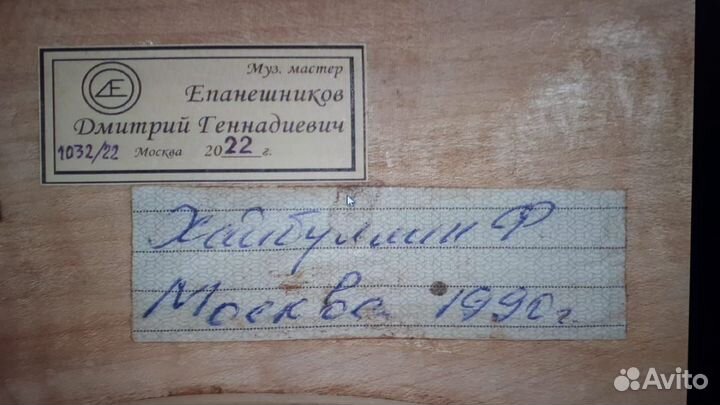 Муз. мастер
ДЕ
Епанешников
Дмитрий Геннадиевич
1032/22 Москва 2022 г.
Хайбуллин Р
Москва 1990 г
Avito